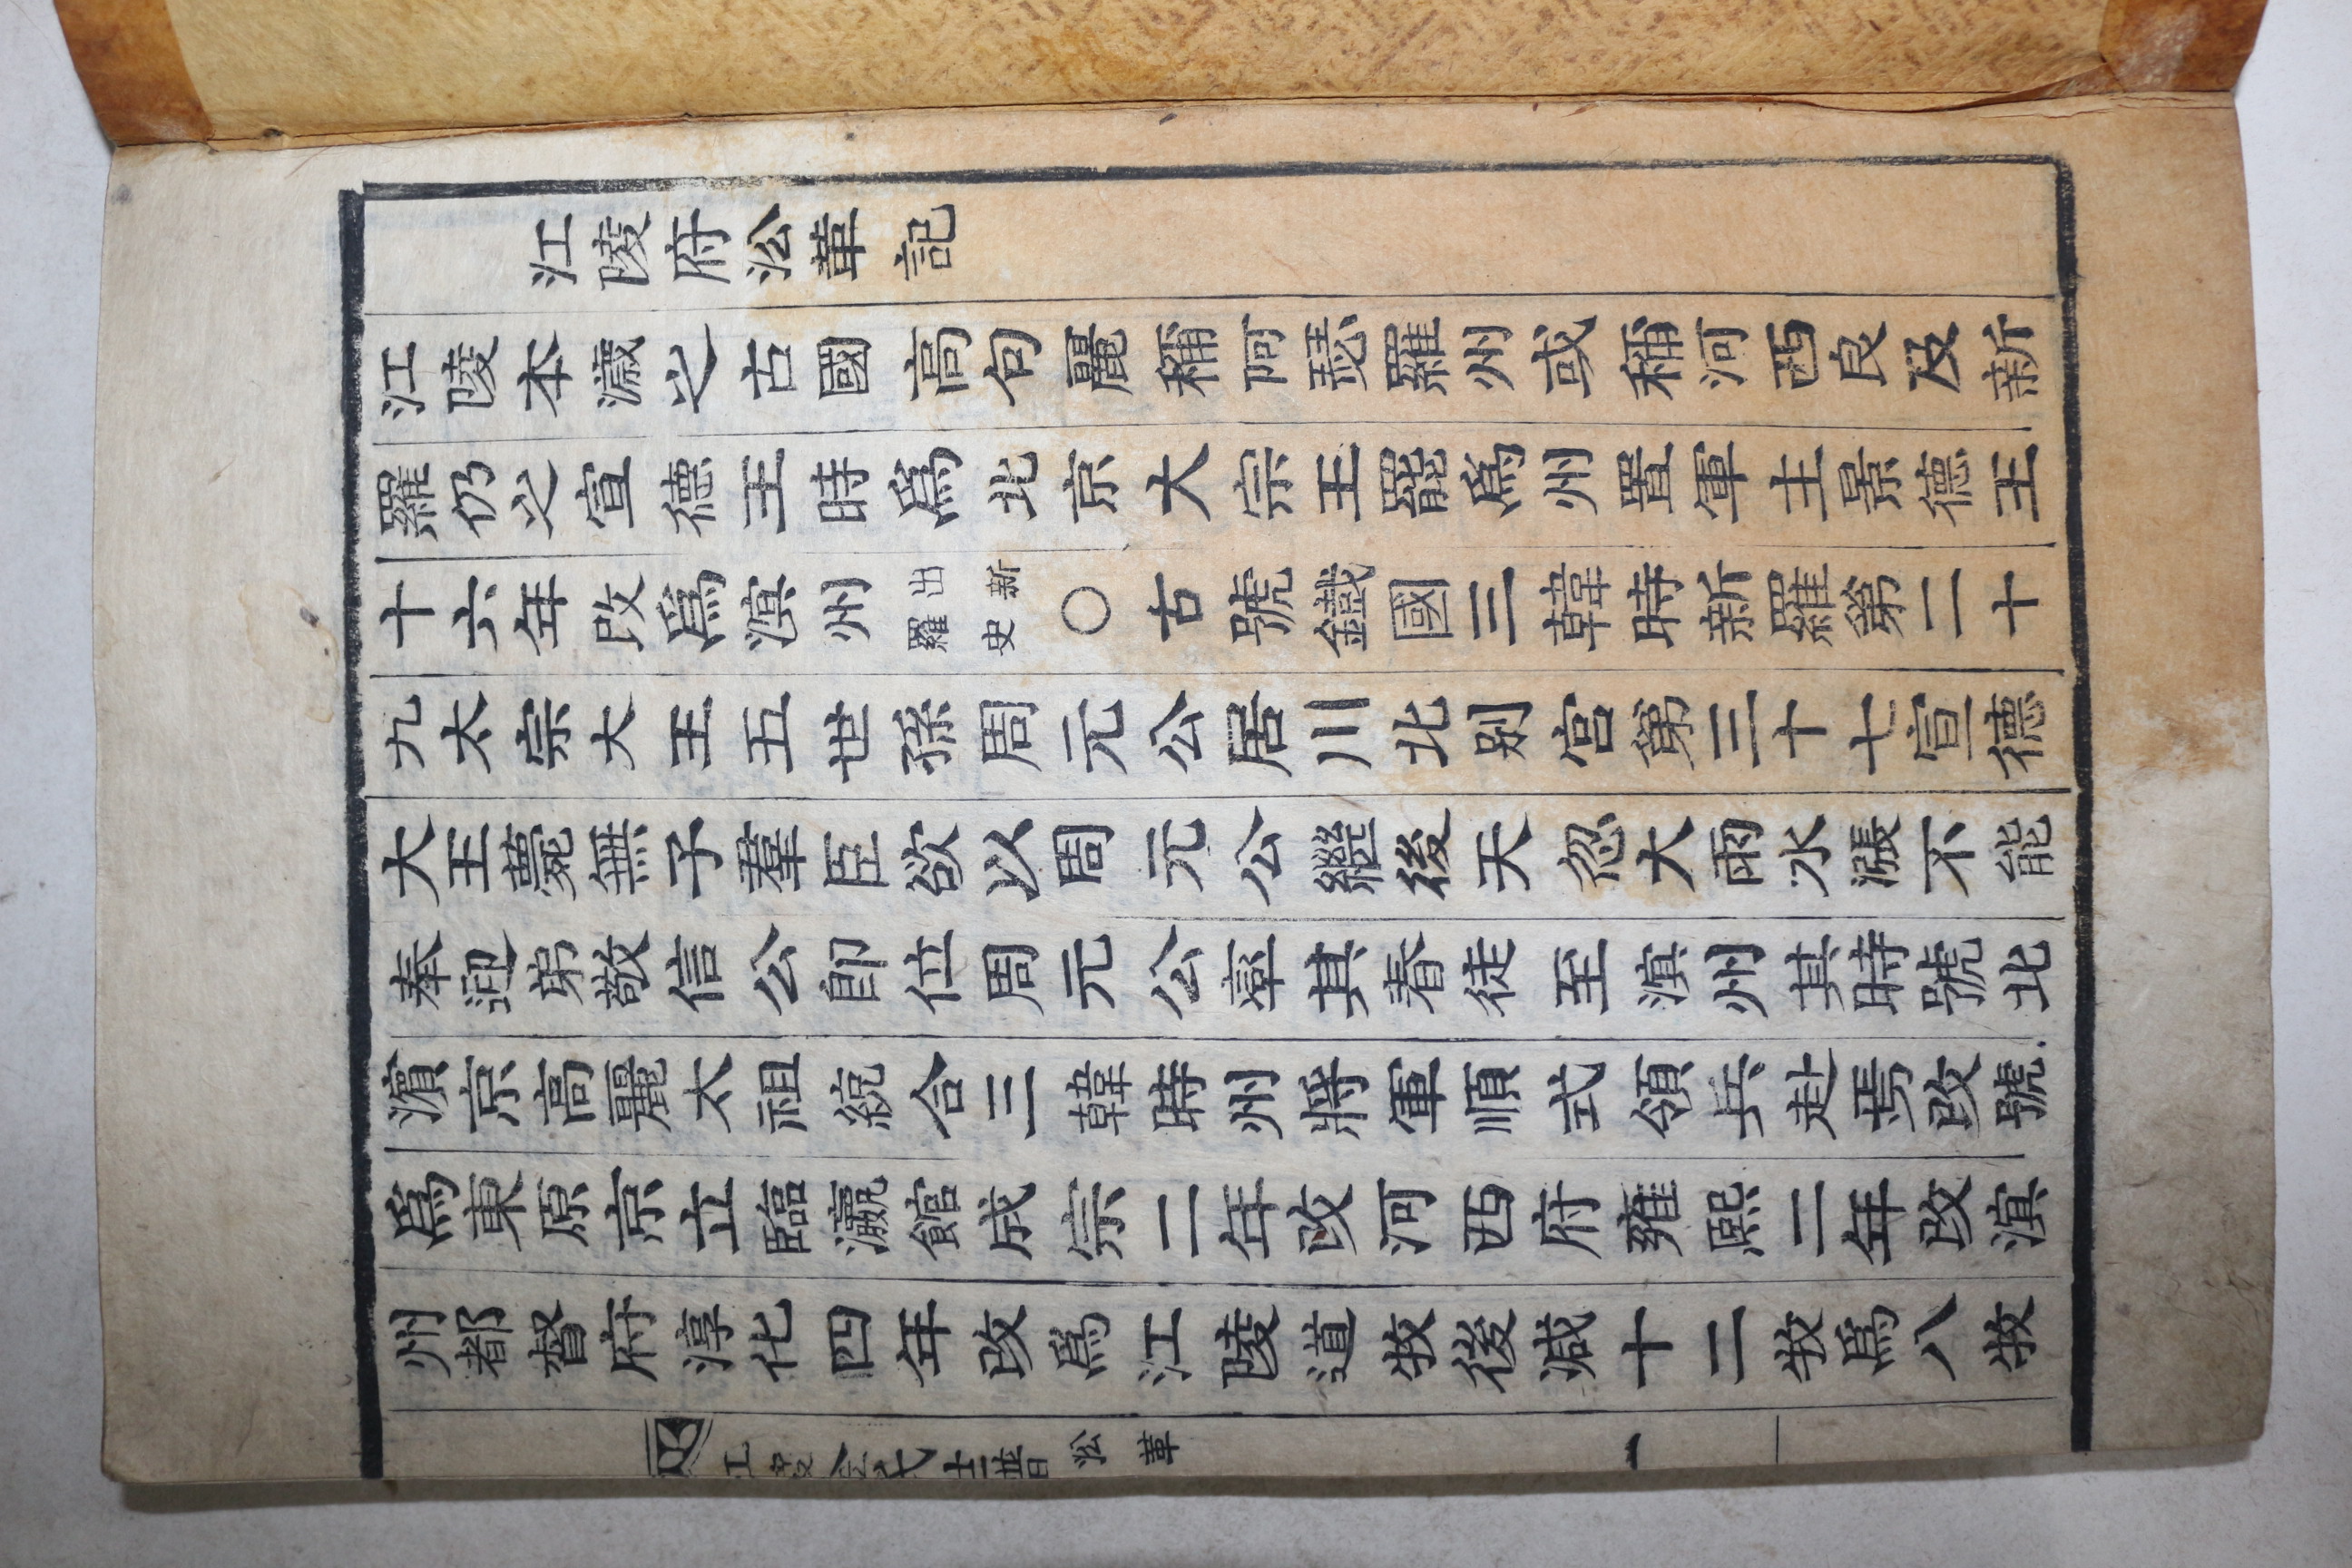 江陵府㳂革記
江陵本濊之古國高句麗稱阿瑟羅州或稱河西良及新
羅仍之宣德王時爲北京大宗王罷爲州置軍主景德王
十六年改爲溟州出新羅史○古號鐵國三韓時新羅第二十
九太宗大王五世孫周元公居川北別宮第三十七宣德
大王薨無子羣臣欲以周元公繼後天忽大雨水漲不能
奉迎弟敬信公卽位周元公率其春徒至溟州其時號北
濵京高麗太祖統合三韓時州將軍順式領兵赴焉改號
爲東原京立臨瀛館成宗二年改河西府雍熙二年改溟
州都督府淳化四年改爲江陵道牧後減十二牧爲八牧
江陵金氏世譜 㳂革 一